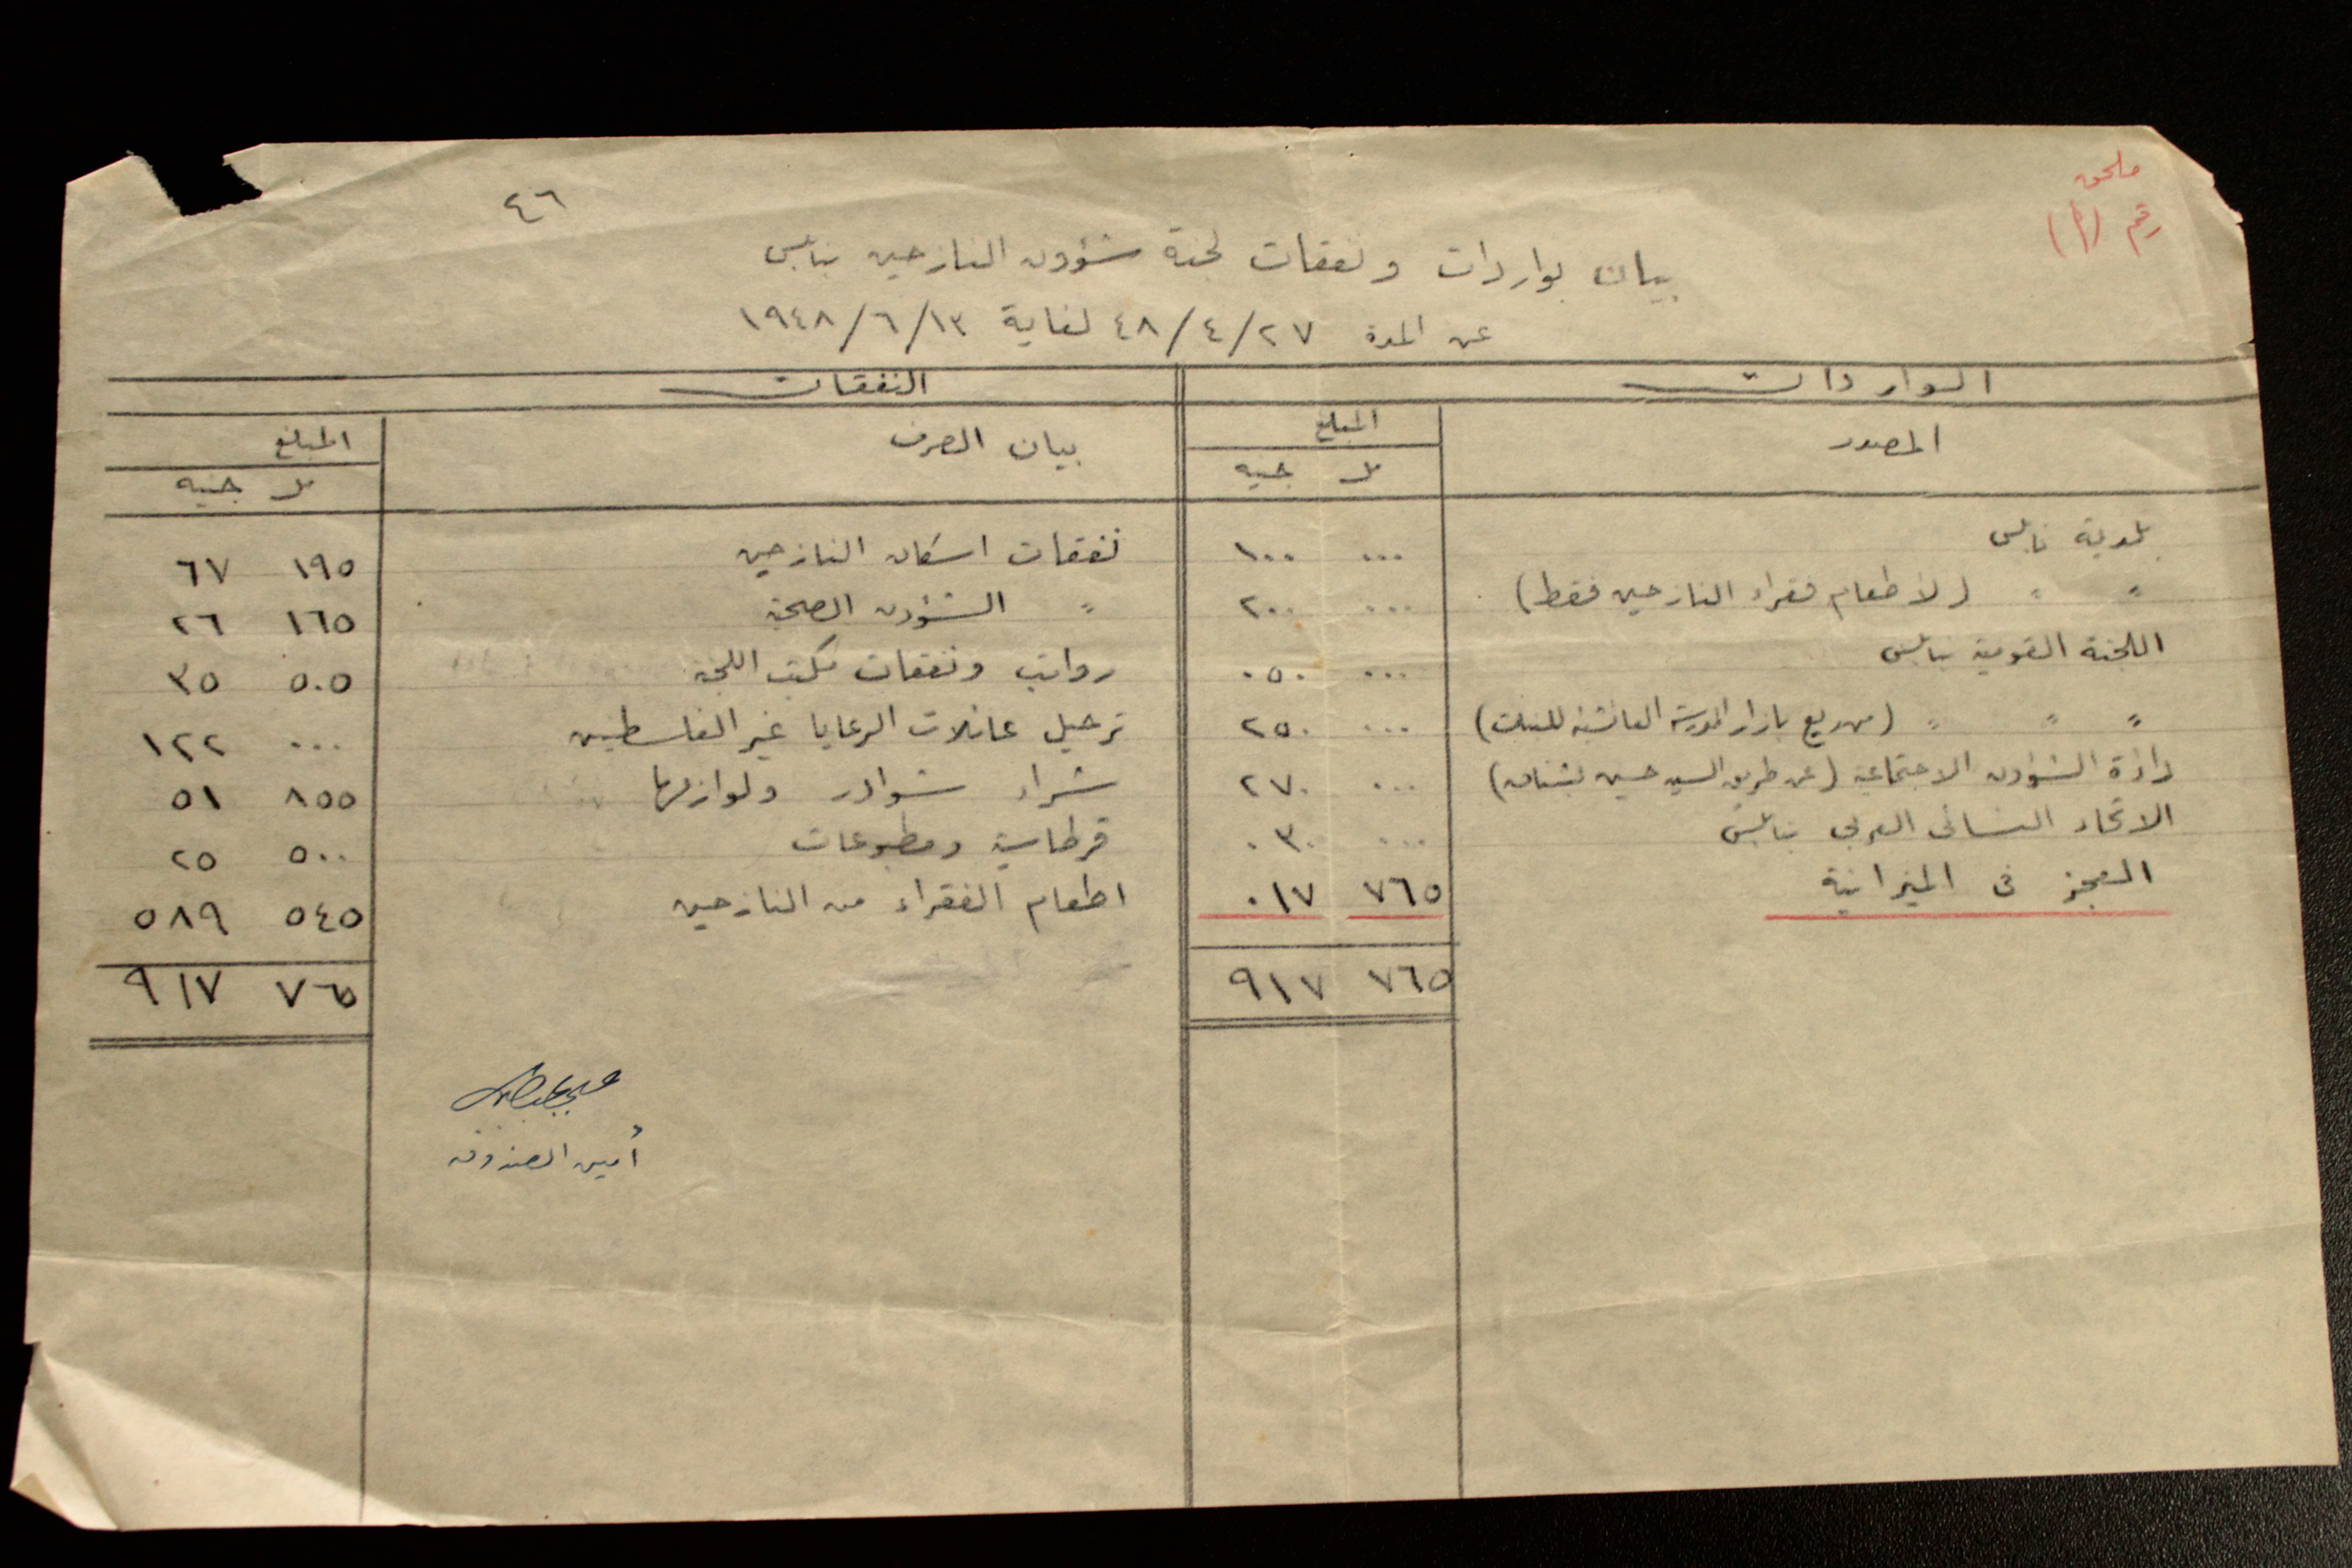 ملحق
رقم (أ)
٤٦
بيان بواردات ونفقات لجنة شؤون النازحين بنابلس
عن المدة ٤٨/٤/٢٧ لغاية ١٩٤٨/٦/١٣
الواردات
المصدر المبلغ
مل جنيه
بلدية نابلس ٠٠٠ ١٠٠
" " (لأطعام فقراء النازحين فقط) ٠٠٠ ٢٠٠
اللجنة القومية بنابلس ٠٠٠ ٠٥٠
" " " (من ريع بازار المدرسة العائشية للبنات) ٠٠٠ ٢٥٠
دائرة الشؤون الاجتماعية (عن طريق السيد حسين بشناق) ٠٠٠ ٢٧٠
الاتحاد النسائى العربى بنابلس ٠٠٠ ٠٣٠
العجز فى الميزانية ٧٦٥ ٠١٧
٧٦٥ ٩١٧
النفقات
بيان الصرف المبلغ
مل جنيه
نفقات اسكان النازحين ١٩٥ ٦٧
" الشؤون الصحية ١٦٥ ٢٦
رواتب ونفقات مكتب اللجنة ٥٠٥ ٣٥
ترحيل عائلات الرعايا غير الفلسطينين ٠٠٠ ١٢٢
شراء شوادر ولوازمها ٨٥٥ ٥١
قرطاسية ومطبوعات ٥٠٠ ٢٥
اطعام الفقراء من النازحين ٥٤٥ ٥٨٩
٧٦٥ ٩١٧
أمين الصندوق